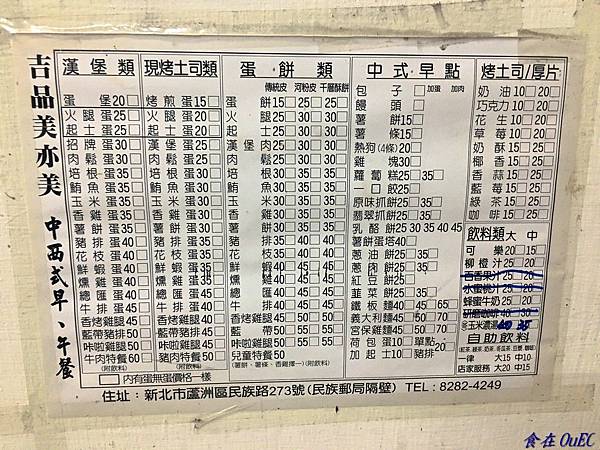 吉品美亦美 中西式早、午餐
漢堡類
蛋堡20□
火腿蛋25□
起士蛋25□
招牌蛋30□
肉鬆蛋30□
培根蛋35□
鮪魚蛋35□
玉米蛋35□
香雞蛋35□
薯餅蛋35□
豬排蛋40□
花枝蛋40□
鮮蝦蛋40□
燻雞蛋45□
總匯蛋45□
牛排蛋45□
香烤雞腿50□
藍帶豬排50□
咔啦雞腿50□
牛肉特餐60□
(附飲料)
現烤土司類
烤煎蛋15□
火腿蛋20□
起士蛋20□
漢堡蛋25□
肉鬆蛋25□
培根蛋30□
鮪魚蛋30□
玉米蛋30□
香雞蛋30□
薯餅蛋30□
豬排蛋35□
花枝蛋35□
鮮蝦蛋35
燻雞蛋40
總匯蛋40
牛排蛋40
香烤雞腿45
藍帶豬排45
咔啦雞腿45
豬肉特餐60
(附飲料)
蛋餅類
傳統皮 河粉皮 千層酥餅
蛋餅15□25□25□
火腿25□30□30□
起士25□30□30□
漢堡肉25□30□30□
肉鬆25□
培根30□35□35□
鮪魚30□35□35□
玉米30□35□35□
香雞30□35□35□
薯餅30□35□35□
豬排35□40□40□
花枝35□40□40□
鮮蝦
燻雞
總匯
牛排
香烤雞腿
藍帶50
咔啦雞腿50
兒童特餐50
(薯餅、薯條、香雞擇一)(附飲料)
中式早點
包子□加蛋 加肉
饅頭□
薯餅15□
薯條15□
熱狗(4條)20□
雞塊30□
蘿蔔糕25□35□
一口餃25□
原味抓餅25□35□
翡翠抓餅25□35□
乳酪餅25 30 35 40 45
薯餅蛋塔40□
蔥油餅25□35□
蔥肉餅25□35□
紅豆餅25□
韮菜餅25□35□
鐵板麵40□45□65□
義大利麵45□50□70□
宮保雞麵45□50□70□
荷包蛋10□單點
加起士10□豬排
烤土司/厚片
奶油10□20□
巧克力10□20□
花生10□20□
草莓10□20□
奶酥15□25□
椰香15□25□
香蒜15□25□
藍莓15□25□
綠茶15□25□
咖啡15□25□
飲料類 大 中
可樂20□15□
柳橙汁25□20□
百香果汁25□20□
水蜜桃汁25□20□
蜂蜜牛奶25□20□
研磨咖啡40□30□
玉米濃湯40 35
自助飲料
一律 大15 中10
店家服務 大20 中15
□內有蛋無蛋價格一樣
住址：新北市蘆洲區民族路273號(民族郵局隔壁) TEL：8282-4249
食在OuEC